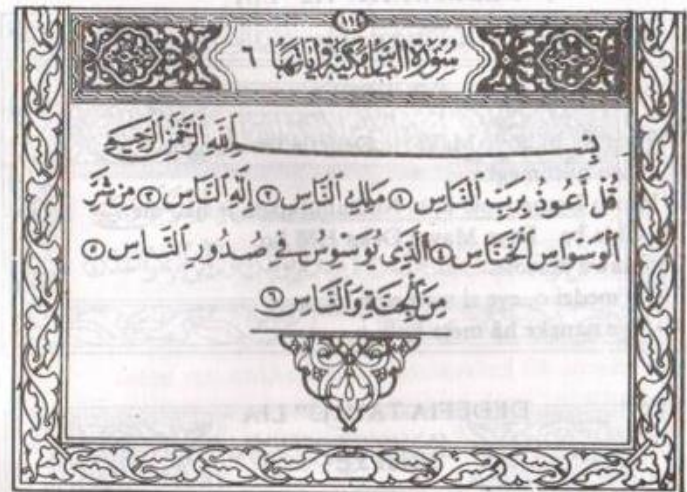 ١١٤
سُورَةُ النَّاسِ مَكِّيَّةٌ وَآيَاتُهَا ٦
بِسْمِ اللَّهِ الرَّحْمَٰنِ الرَّحِيمِ
قُلْ أَعُوذُ بِرَبِّ ٱلنَّاسِ ١ مَلِكِ ٱلنَّاسِ ٢ إِلَٰهِ ٱلنَّاسِ ٣ مِن شَرِّ
ٱلْوَسْوَاسِ ٱلْخَنَّاسِ ٤ ٱلَّذِى يُوَسْوِسُ فِى صُدُورِ ٱلنَّاسِ ٥
مِنَ ٱلْجِنَّةِ وَٱلنَّاسِ ٦